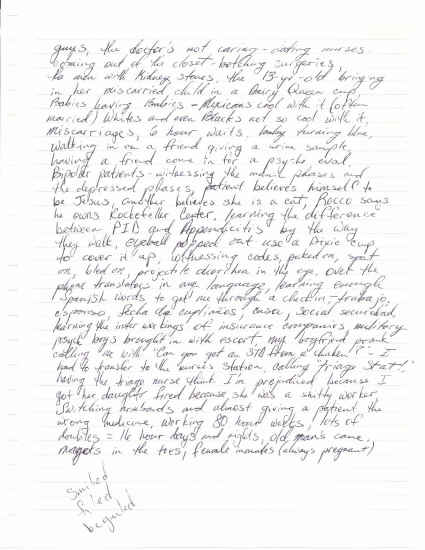 guys, the doctor's not caring - dating nurses
coming out of the closet - botching surgeries,
to men with kidney stones, the 13-yr-old bringing
in her miscarried child in a Dairy Queen cup,
Babies having Babies - Mexicans cool with it (often
married) Whites and even Blacks not so cool with it,
Miscarriages, 6 hour waits, baby turning blue,
walking in on a friend giving a urine sample,
having a friend come in for a psych eval,
Bipolar patients - witnessing the manic phases and
the depressed phases, patient believes himself to
be Jesus, another believes she is a cat, Rocco says
he owns Rockefeller Center, learning the difference
between PID and Appendicitis by the way
they walk, eyeball popped out use a Dixie cup
to cover it up, witnessing codes, puked on, spat
on, bled on, projectile diarrhea in the eye, over the
phone translators in any language, learning enough
Spanish words to get me through a check-in - trabajo,
esposo, fecha de cumpleanos, casa, social securidad,
learning the inner workings of insurance companies, military
psych boys brought in with escort, my boyfriend prank
calling me with "Can you get an STD from a chicken?" - I
had to transfer to the nurse's station, calling "triage stat!"
having the triage nurse think I'm prejudiced because I
got her daughter fired because she was a shitty worker,
Switching armbands and almost giving a patient the
wrong medicine, working 80 hour weeks, lots of
doubles = 16 hour days and nights, old man's cane,
maggots in the toes, female inmates (always pregnant)
Smiled
filed
beguiled